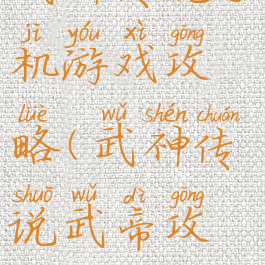 jī yóu xì gōng
机游戏攻
lüè wǔ shén chuán
略(武神传
shuō wǔ dì gōng
说武帝攻